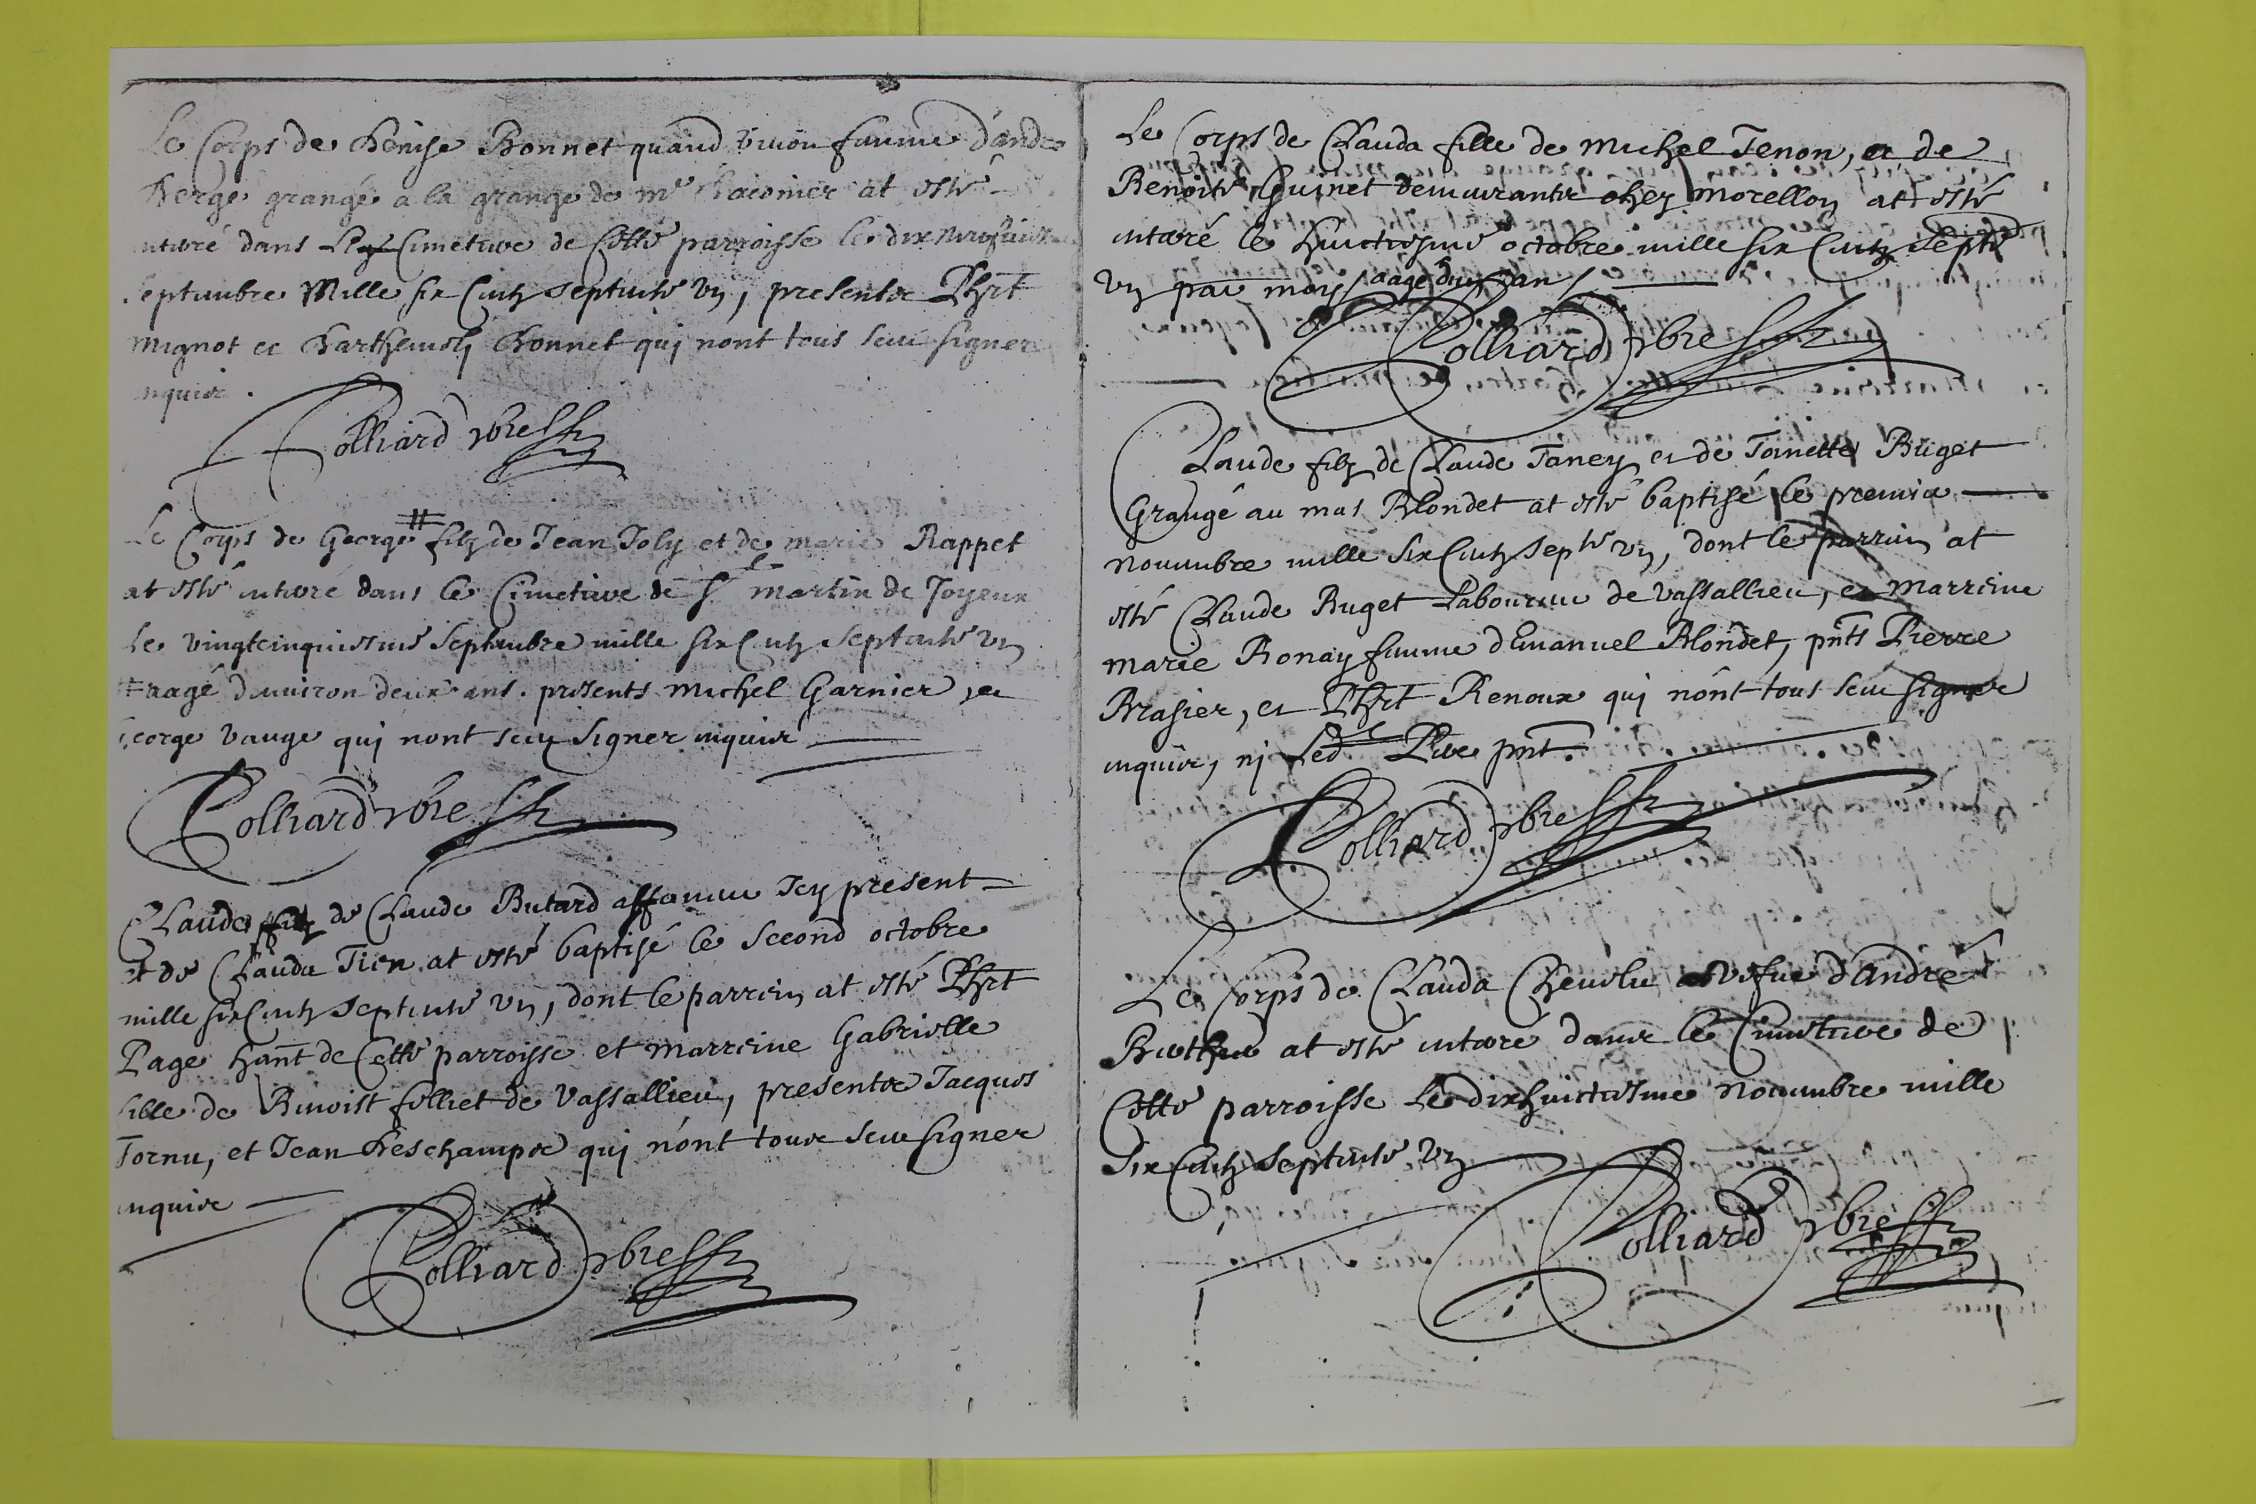 Le Corps de Denise Bonnet quand vivoit famme d'André
Berge grangé a la grange de mr at esté
enterré dans Le Cimetiere de Cette parroisse le dix neufiesme
Septembre Mille six Centz septente un, presentz Phrt
Mignot et Barthelemy Bonnet qui nont tous sceu signer
enquis.
Colliard vbre
Le Corps de George # filz de Jean Joly et de marie Rappet
at esté enterré dans le Cimetiere de St martin de Joyeux
Le vingtcinquiesme Septembre mille six Centz Septente un
# aagé d'environ deux ans. presents Michel Garnier, et
George Vauge qui nont sceu Signer enquis
Colliard vbre
Claude filz de Claude Butard affaneur Icy present
et de Clauda Tien at esté baptisé le second octobre
mille six Centz septente un, dont le parrein at esté Phrt
Page hant de Cette parroisse et marreine Gabrielle
fille de Benoist folliet de Vassallieu, presentz Jacques
Tornu, et Jean Deschamps qui n'ont tous sceu signer
enquis
Colliard vbre
Le Corps de Clauda fille de Michel Tenon, et de
Benoite Guinet demeurante chez Morellon at esté
enterré le huictiesme octobre mille six Centz Septte
un par moy / aagé d'un an /
Colliard vbre
Claude filz de Claude Janey et de Toinette Buget
Grangé au mas Blondet at esté baptisé le premier
novembre mille six Centz septte un, dont le parrein at
esté Claude Buget Laboureur de Vassallieu, et marreine
marie Ronay famme d'Emanuel Blondet, pnts Pierre
Brasier, et Phrt Renoux qui nônt tous sceu signer
enquis, nj Led. Pere pnt.
Colliard vbre
Le Corps de Clauda vefue d'André
at esté enterré dans le Cimetiere de
Cette parroisse Le dixhuictiesme novembre mille
Six Centz septente un
Colliard vbre